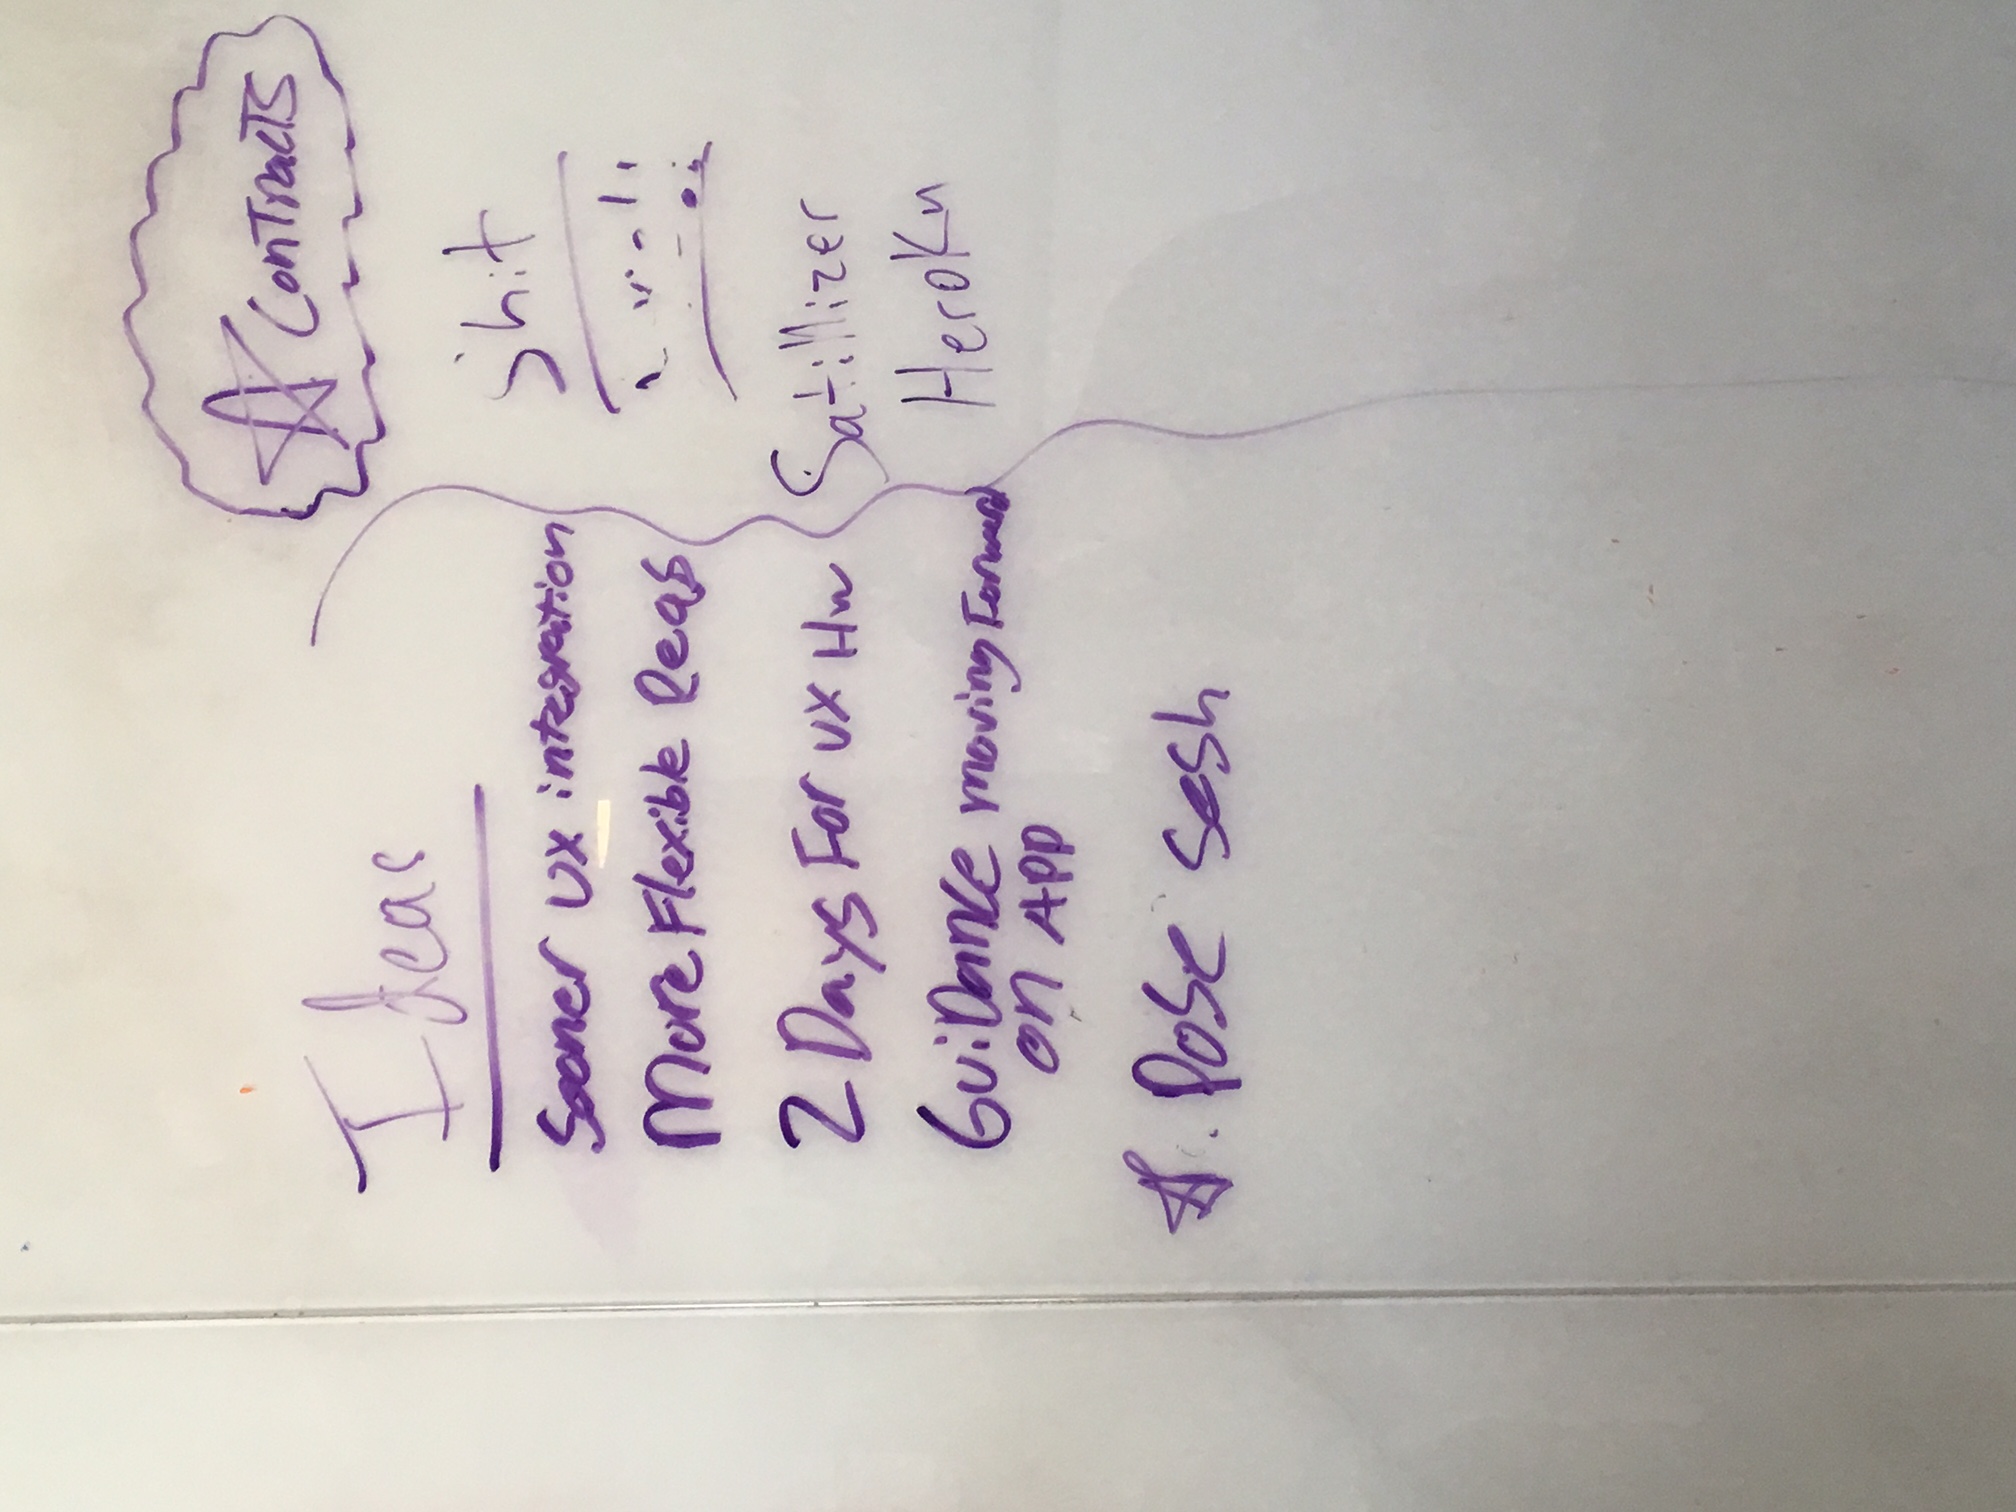 Ideas
Sooner UX integration
More Flexible Reqs
2 Days For UX Hw
GuiDance moving Forward
on APP
Pose sesh
ConTracTS
shit
Satillizer
HeroKu